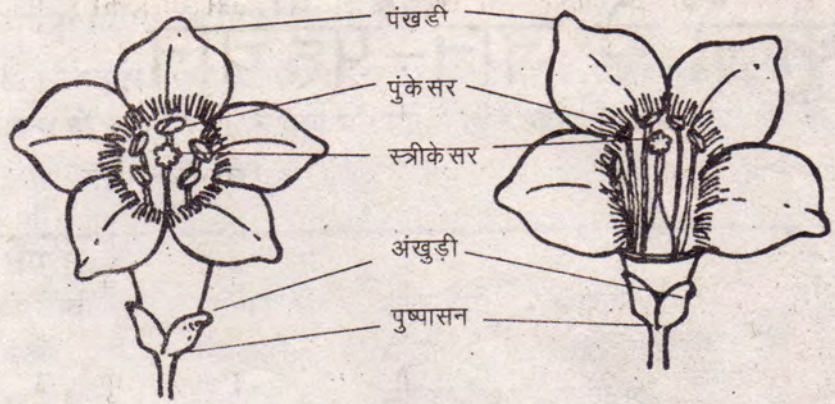 पंखडी
पुंकेसर
स्त्रीकेसर
अंखुड़ी
पुष्पासन